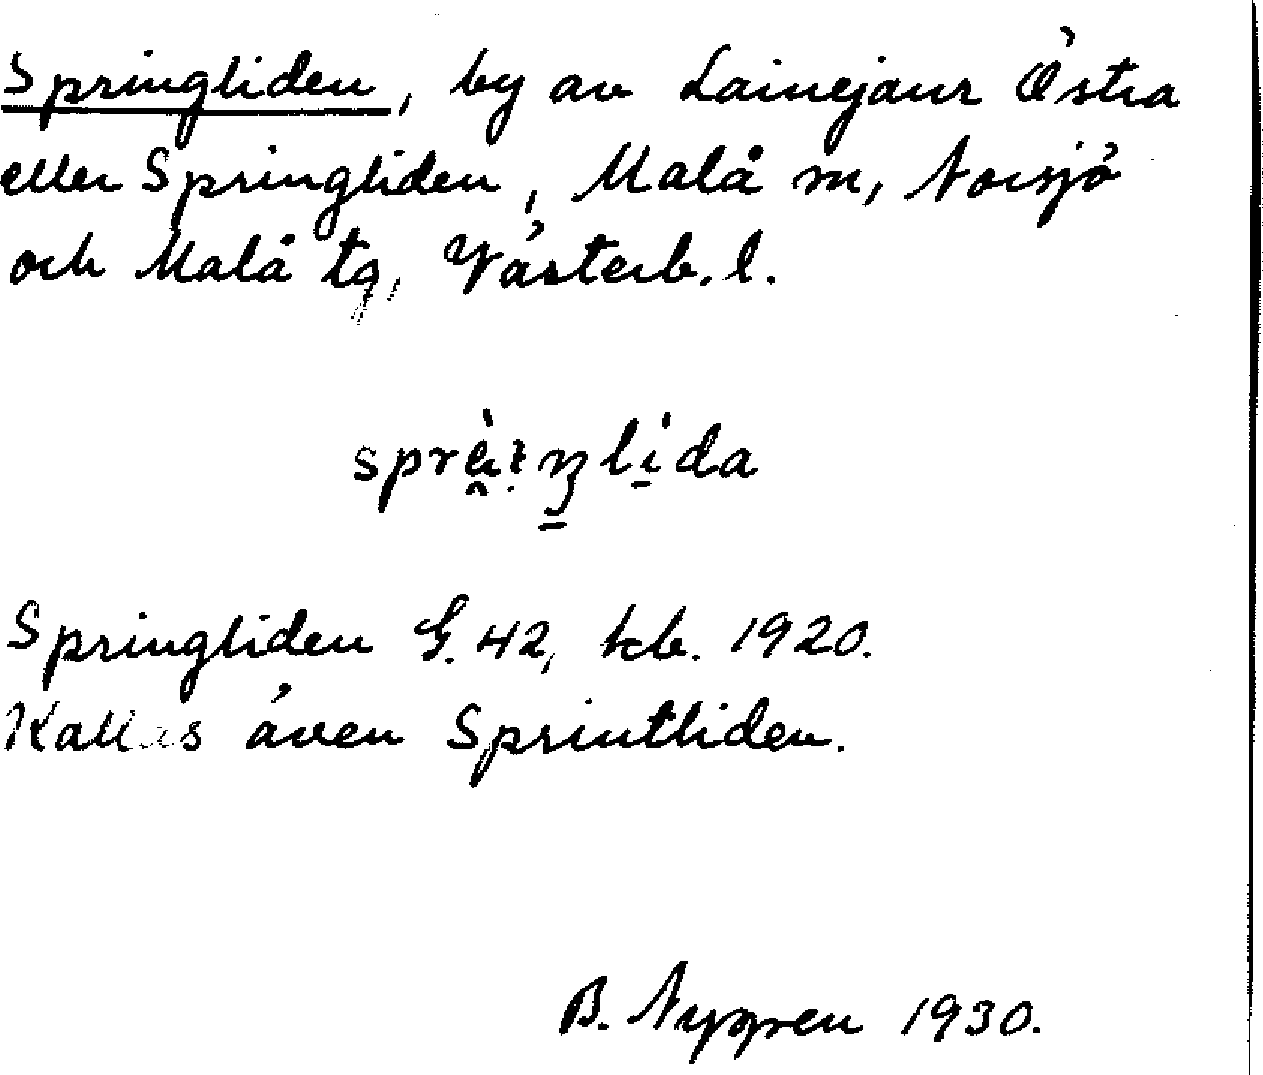 Springliden, by av Lainejaur Östra
eller Springliden, Malå sn, Norsjö
och Malå tg, Västerb. l.
Springliden G. 42, kb. 1920.
Kallas även Sprintliden.
B. Nygren 1930.